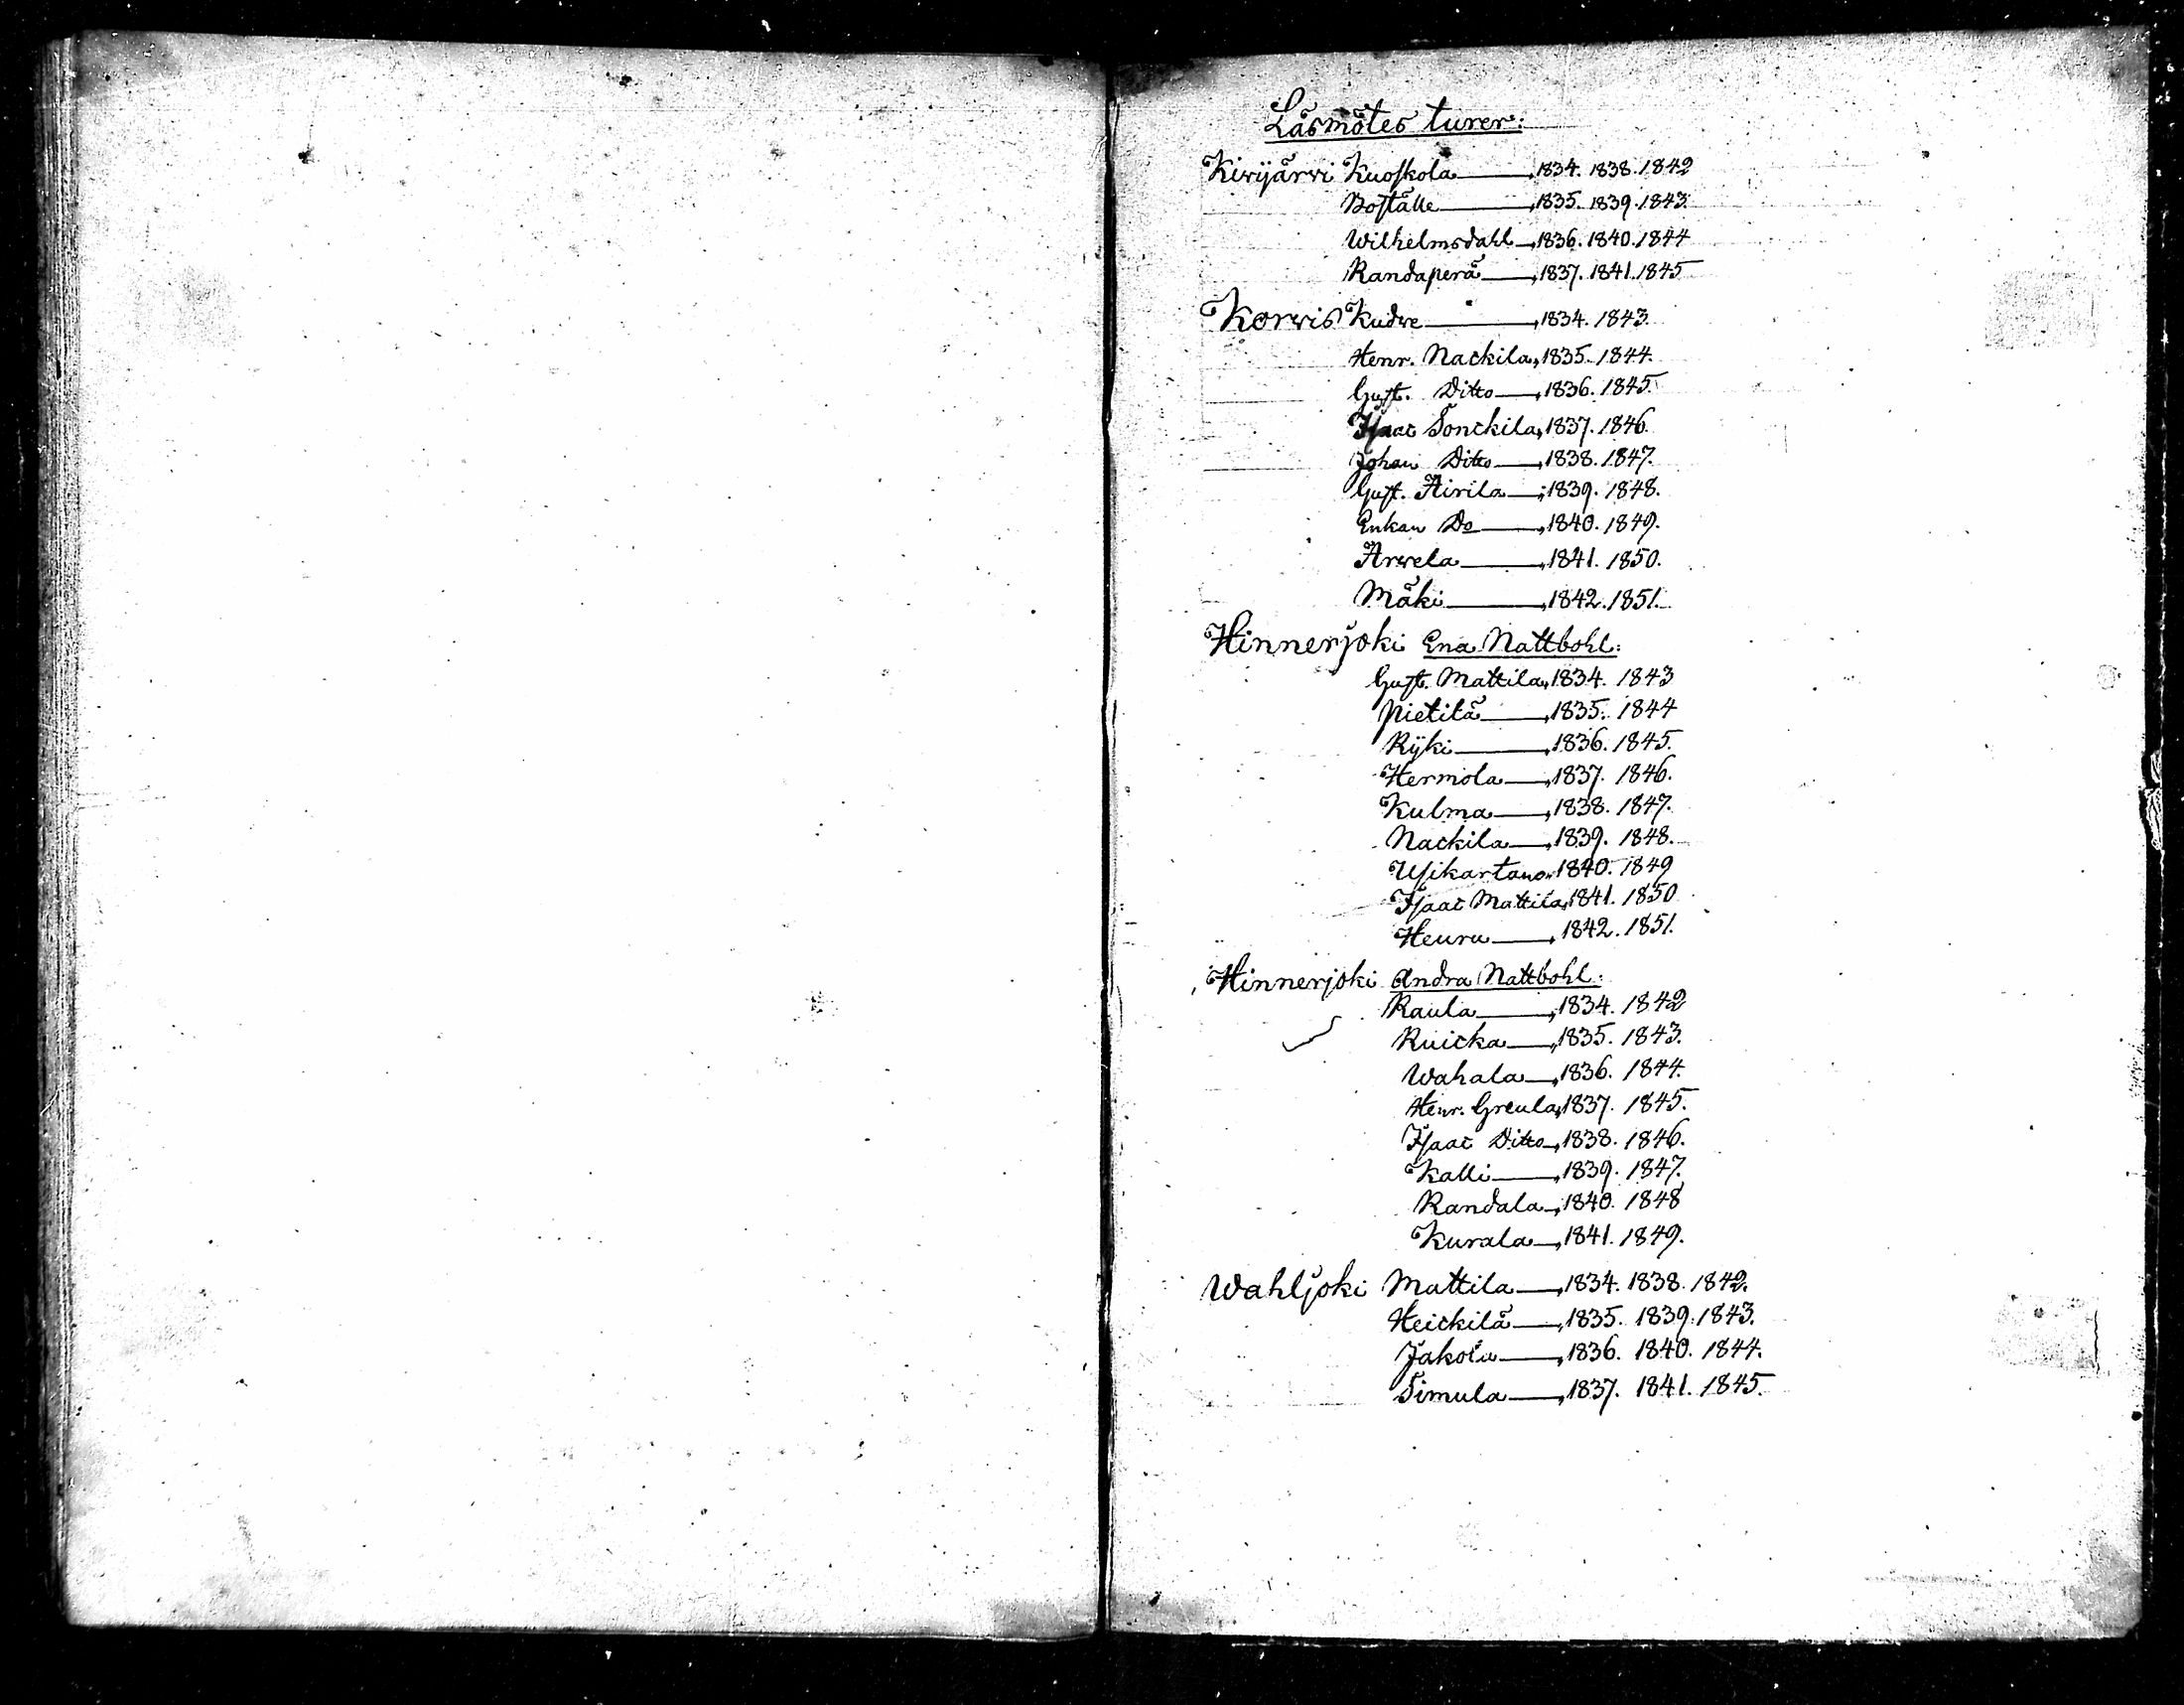 Läsmötes turer:
Kirijärvi Kuoskola 1834. 1838. 1842
Boställe 1835. 1839. 1843.
Wilhelmsdahl 1836. 1840. 1844
Randaperä 1837. 1841. 1845
Korvis Kudre 1834. 1843.
Henr. Nackila 1835. 1844.
Gust. Ditto 1836. 1845.
Isaac Sonckila 1837. 1846
Johan Ditto 1838. 1847.
Gust. Äirilä 1839. 1848.
Enkan Do 1840. 1849.
Arvela 1841. 1850.
Mäki 1842. 1851.
Hinnerjoki Ena Nattbohl:
Gust. Mattila 1834. 1843
Pietilä 1835. 1844
Rÿki 1836. 1845.
Hermola 1837. 1846.
Kulma 1838. 1847.
Nackila 1839. 1848.
Usikartano 1840. 1849
Isaac Mattila 1841. 1850
Heuru 1842. 1851.
Hinnerjoki Andra Nattbohl:
Raula 1834. 1842
Ruicka 1835. 1843.
Wahala 1836. 1844.
Henr. Greula 1837. 1845.
Isaac Ditto 1838. 1846.
Kalli 1839. 1847.
Randala 1840. 1848
Kurala 1841. 1849.
Wahljoki Mattila 1834. 1838. 1842.
Heickilä 1835. 1839. 1843.
Jakola 1836. 1840. 1844.
Simula 1837. 1841. 1845.